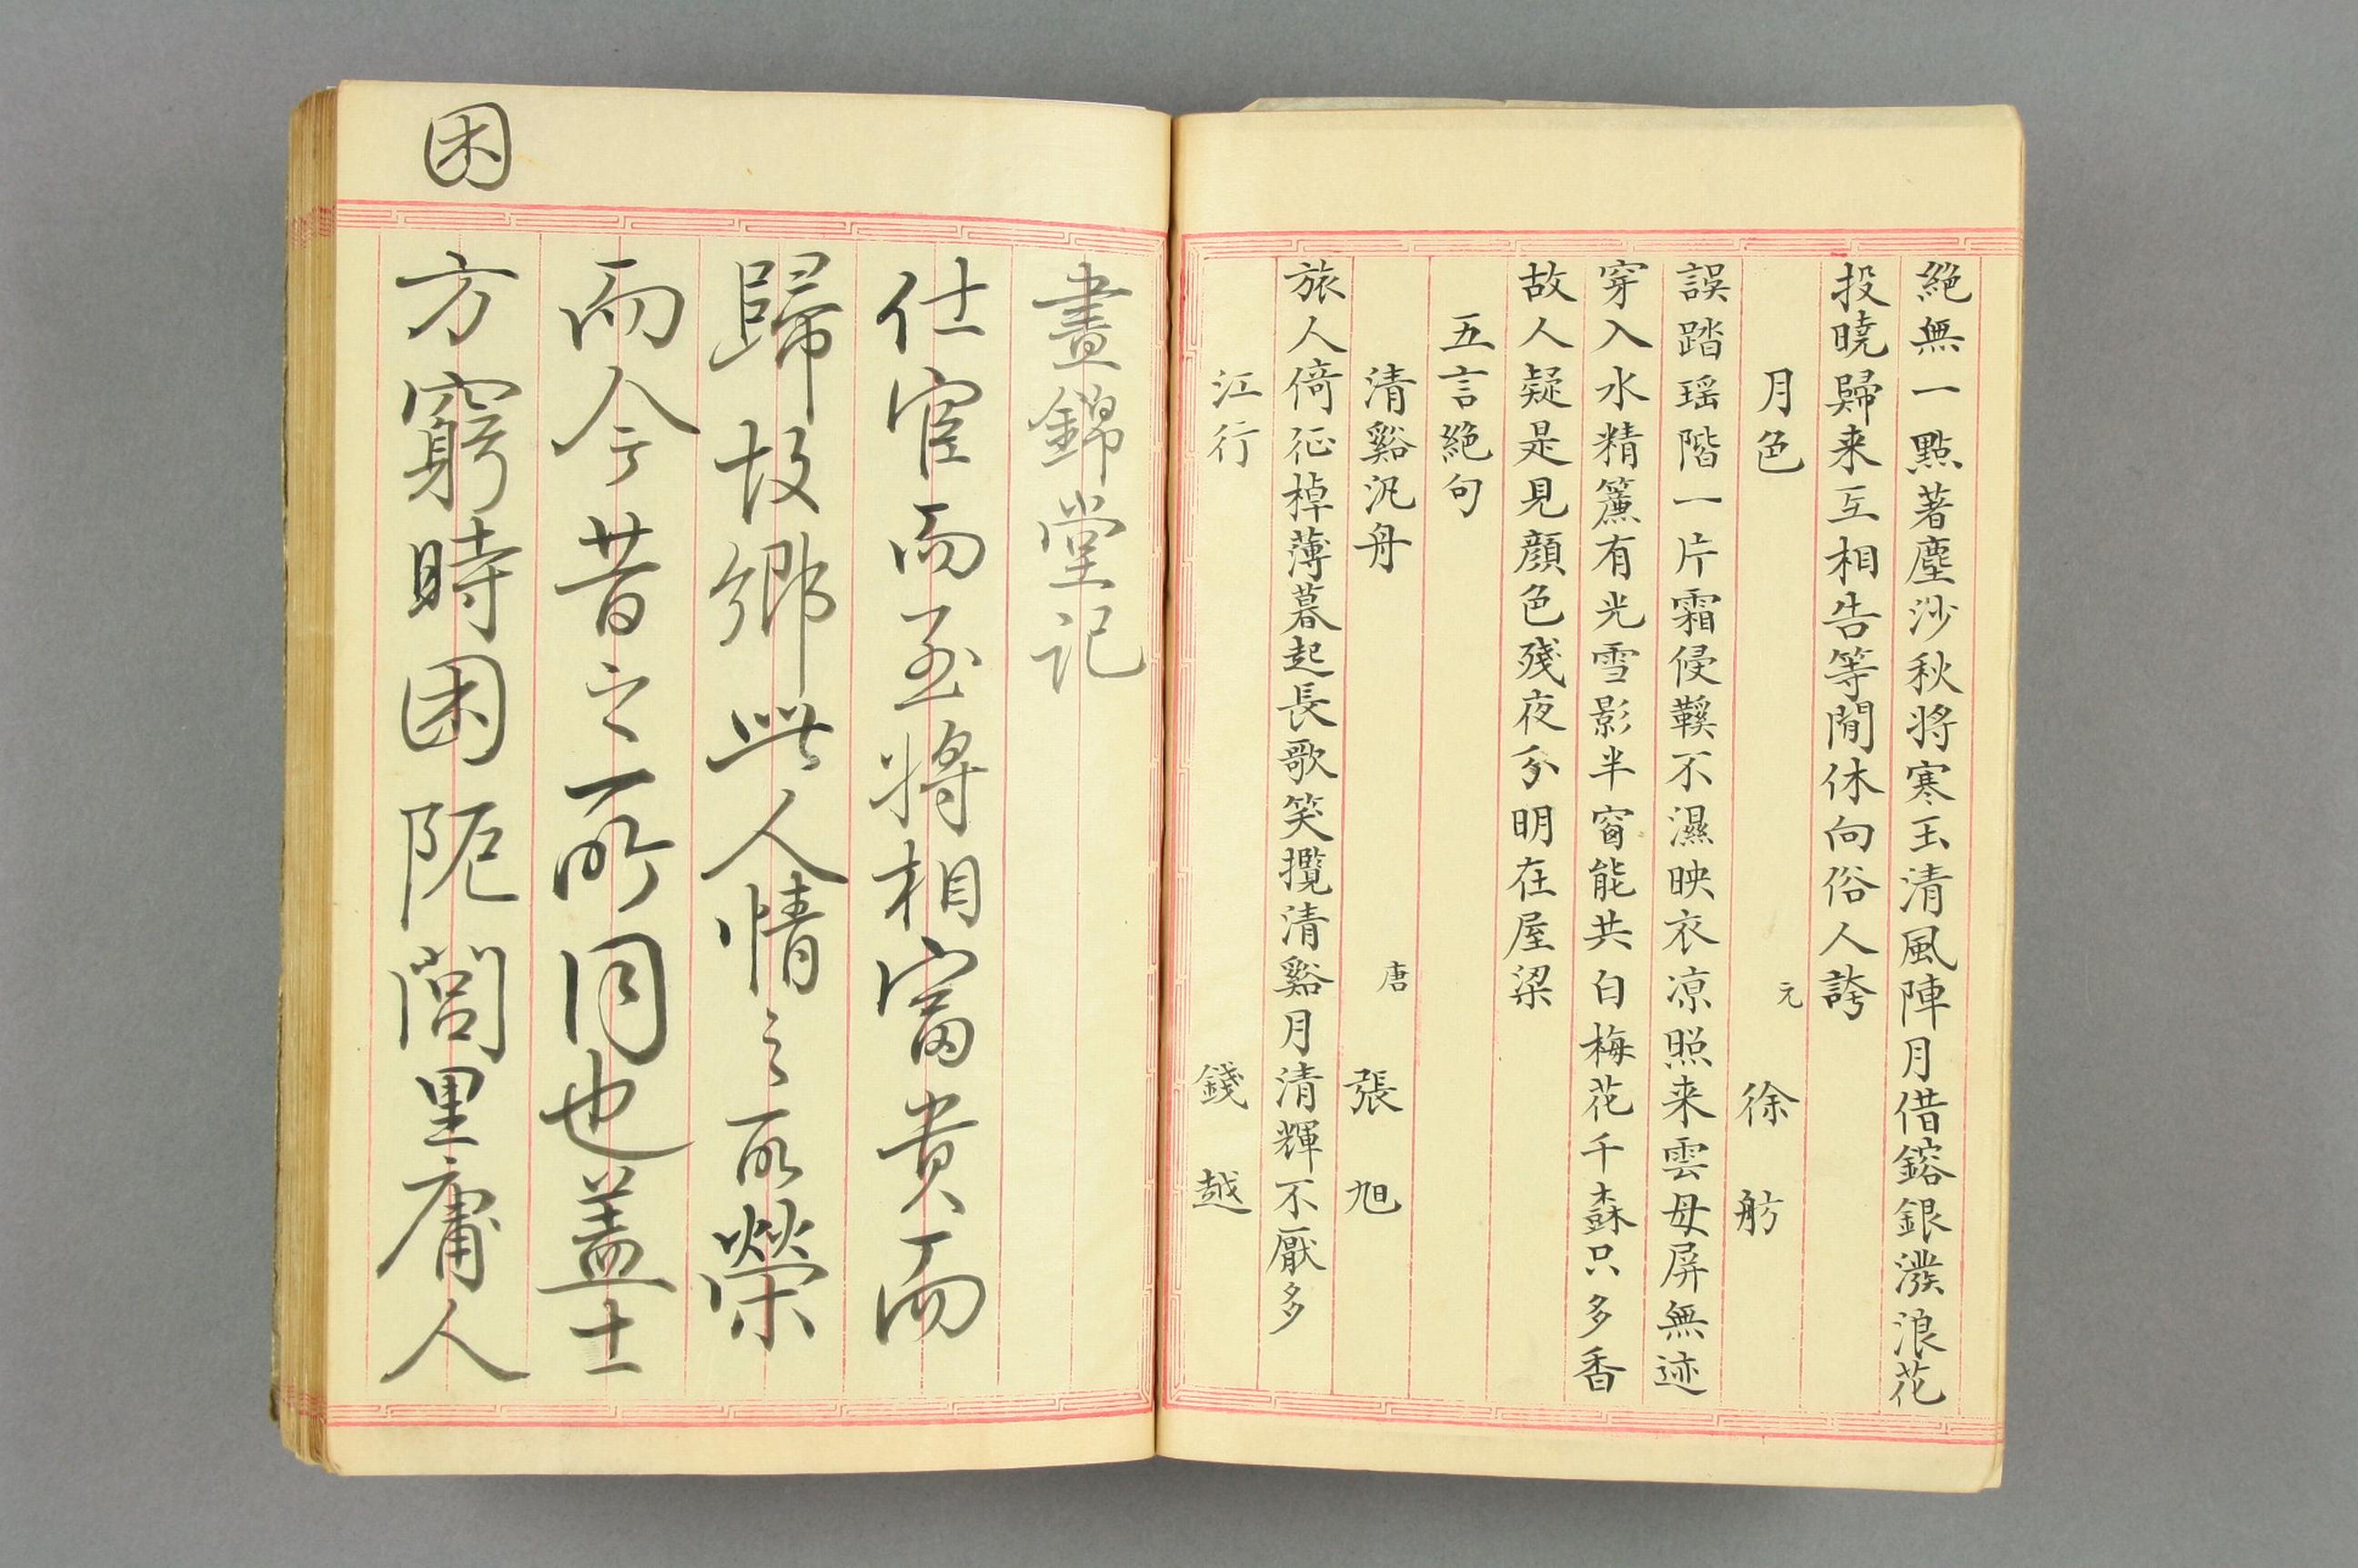 絶無一點著塵沙秋將寒玉清風陣月借鎔銀潑浪花
投曉歸来互相告等閒休向俗人誇
月色　元　徐舫
誤踏瑶階一片霜侵鞵不濕映衣凉照来雲母屏無迹
穿入水精簾有光雪影半窗能共白梅花千森只多香
故人疑是見顔色殘夜分明在屋梁
五言絶句
清谿汎舟　唐　張旭
旅人倚征棹薄暮起長歌笑攬清谿月清輝不厭多
江行　錢越
晝錦堂記
仕宦而至將相富貴而
歸故鄉此人情之所榮
而今昔之所同也盖士
方窮時困阨閭里庸人
困